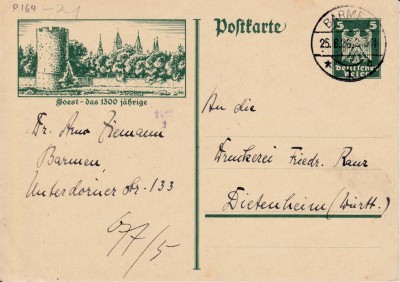 P164 -21
Postkarte
BARMEN
25.8.26
5 5
Deutsches
Reich
Soest - das 1300 jährige
Dr. Arno Ziemann
Barmen,
Unterdörner Str. 133
An die
Druckerei Friedr. Ranz
Dietenheim (Württ.)